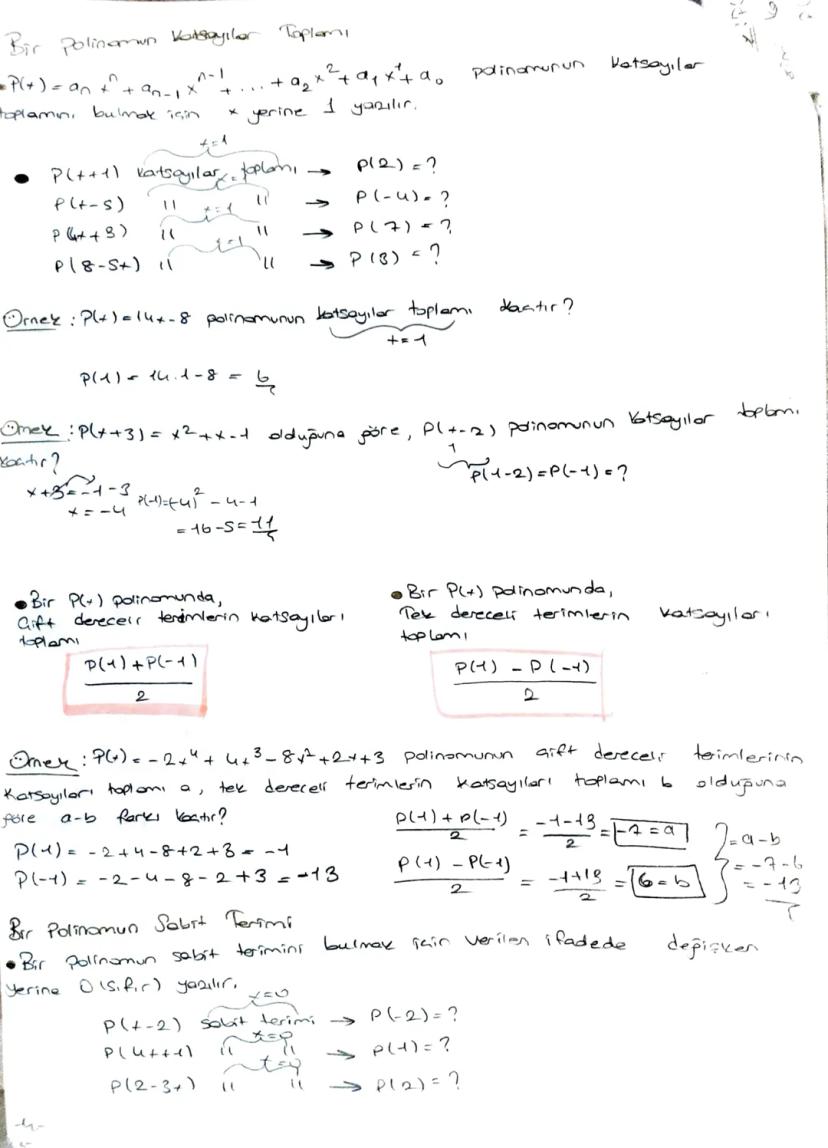 Bir Polinomun Katsayılar Toplamı
P(x) = aₙxⁿ + aₙ₋₁xⁿ⁻¹ + ... + a₂x² + a₁x¹ + a₀ polinomunun katsayılar
toplamını bulmak için x yerine 1 yazılır.
x=1
• P(x+1) katsayılar toplamı → P(2) = ?
x=1
P(x-5) " " → P(-4) = ?
x=1
P(4x+3) " " → P(7) = ?
x=1
P(8-5x) " " → P(3) = ?
Örnek : P(x) = 14x-8 polinomunun katsayılar toplamı kaçtır?
x=1
P(1) = 14.1-8 = 6
Örnek : P(x+3) = x²+x-1 olduğuna göre, P(x-2) polinomunun katsayılar toplamı
kaçtır?
1
P(1-2) = P(-1) = ?
x+3 = -1-3
x = -4
P(-1) = (-4)² - 4-1
= 16-5 = 11
• Bir P(x) polinomunda,
Çift dereceli terimlerin katsayıları
toplamı
P(1) + P(-1)
2
• Bir P(x) polinomunda,
Tek dereceli terimlerin katsayıları
toplamı
P(1) - P(-1)
2
Örnek : P(x) = -2x⁴ + 4x³ - 8x² + 2x + 3 polinomunun çift dereceli terimlerinin
Katsayıları toplamı a, tek dereceli terimlerin katsayıları toplamı b olduğuna
göre a-b farkı kaçtır?
P(1) = -2+4-8+2+3 = -1
P(-1) = -2-4-8-2+3 = -13
P(1) + P(-1) / 2 = -1-13 / 2 = -7 = a
P(1) - P(-1) / 2 = -1+13 / 2 = 6 = b
= a-b
= -7-6
= -13
Bir Polinomun Sabit Terimi
• Bir Polinomun sabit terimini bulmak için verilen ifadede değişken
yerine 0 (sıfır) yazılır.
x=0
P(x-2) sabit terimi → P(-2) = ?
x=0
P(4x+1) " " → P(1) = ?
x=0
P(2-3x) " " → P(2) = ?